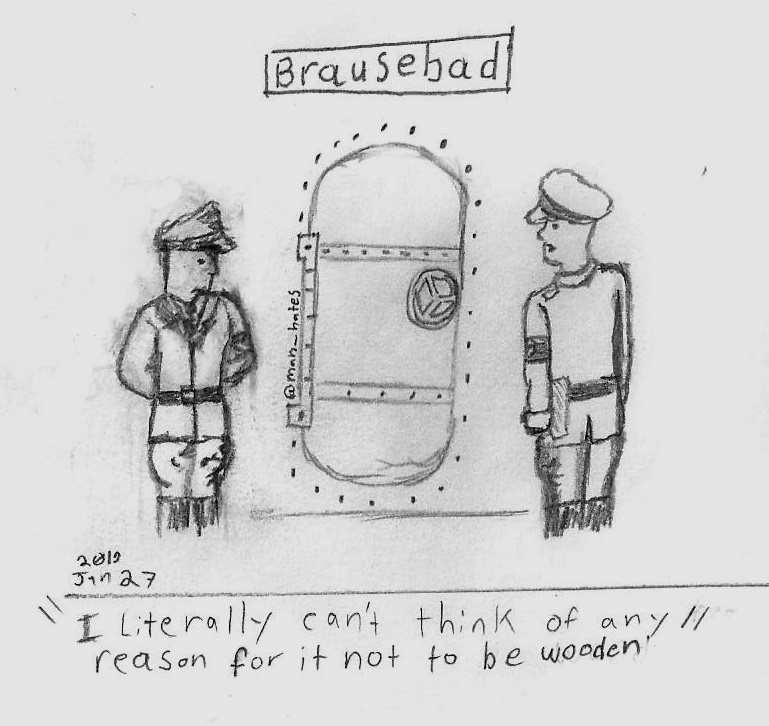 Brausebad
@man_hates
2019
Jan 27
"I Literally can't think of any"
reason for it not to be wooden